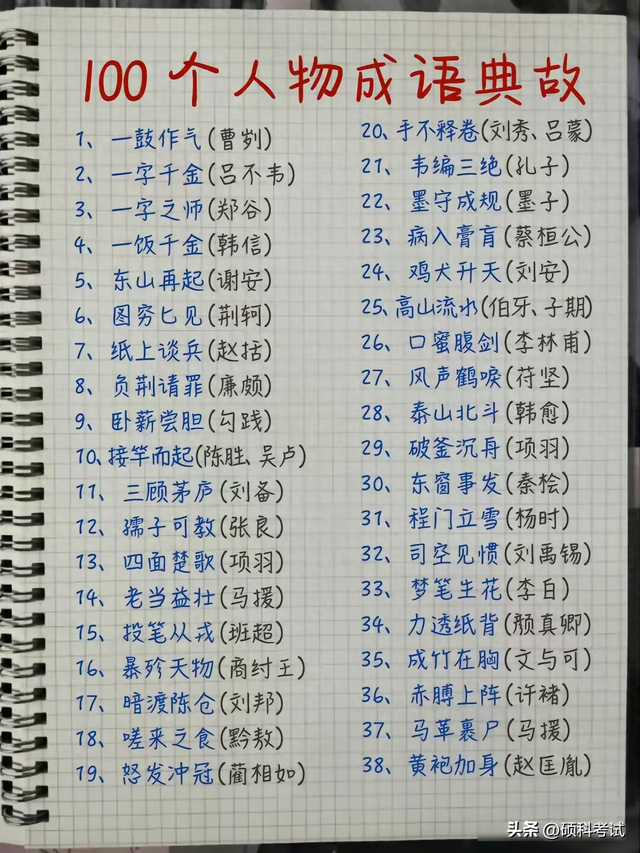 100个人物成语典故
1、一鼓作气(曹刿)
2、一字千金(吕不韦)
3、一字之师(郑谷)
4、一饭千金(韩信)
5、东山再起(谢安)
6、图穷匕见(荆轲)
7、纸上谈兵(赵括)
8、负荆请罪(廉颇)
9、卧薪尝胆(勾践)
10、接竿而起(陈胜、吴卢)
11、三顾茅庐(刘备)
12、孺子可教(张良)
13、四面楚歌(项羽)
14、老当益壮(马援)
15、投笔从戎(班超)
16、暴殄天物(商纣王)
17、暗渡陈仓(刘邦)
18、嗟来之食(黔敖)
19、怒发冲冠(蔺相如)
20、手不释卷(刘秀、吕蒙)
21、韦编三绝(孔子)
22、墨守成规(墨子)
23、病入膏肓(蔡桓公)
24、鸡犬升天(刘安)
25、高山流水(伯牙、子期)
26、口蜜腹剑(李林甫)
27、风声鹤唳(苻坚)
28、泰山北斗(韩愈)
29、破釜沉舟(项羽)
30、东窗事发(秦桧)
31、程门立雪(杨时)
32、司空见惯(刘禹锡)
33、梦笔生花(李白)
34、力透纸背(颜真卿)
35、成竹在胸(文与可)
36、赤膊上阵(许褚)
37、马革裹尸(马援)
38、黄袍加身(赵匡胤)
头条 @硕科考试